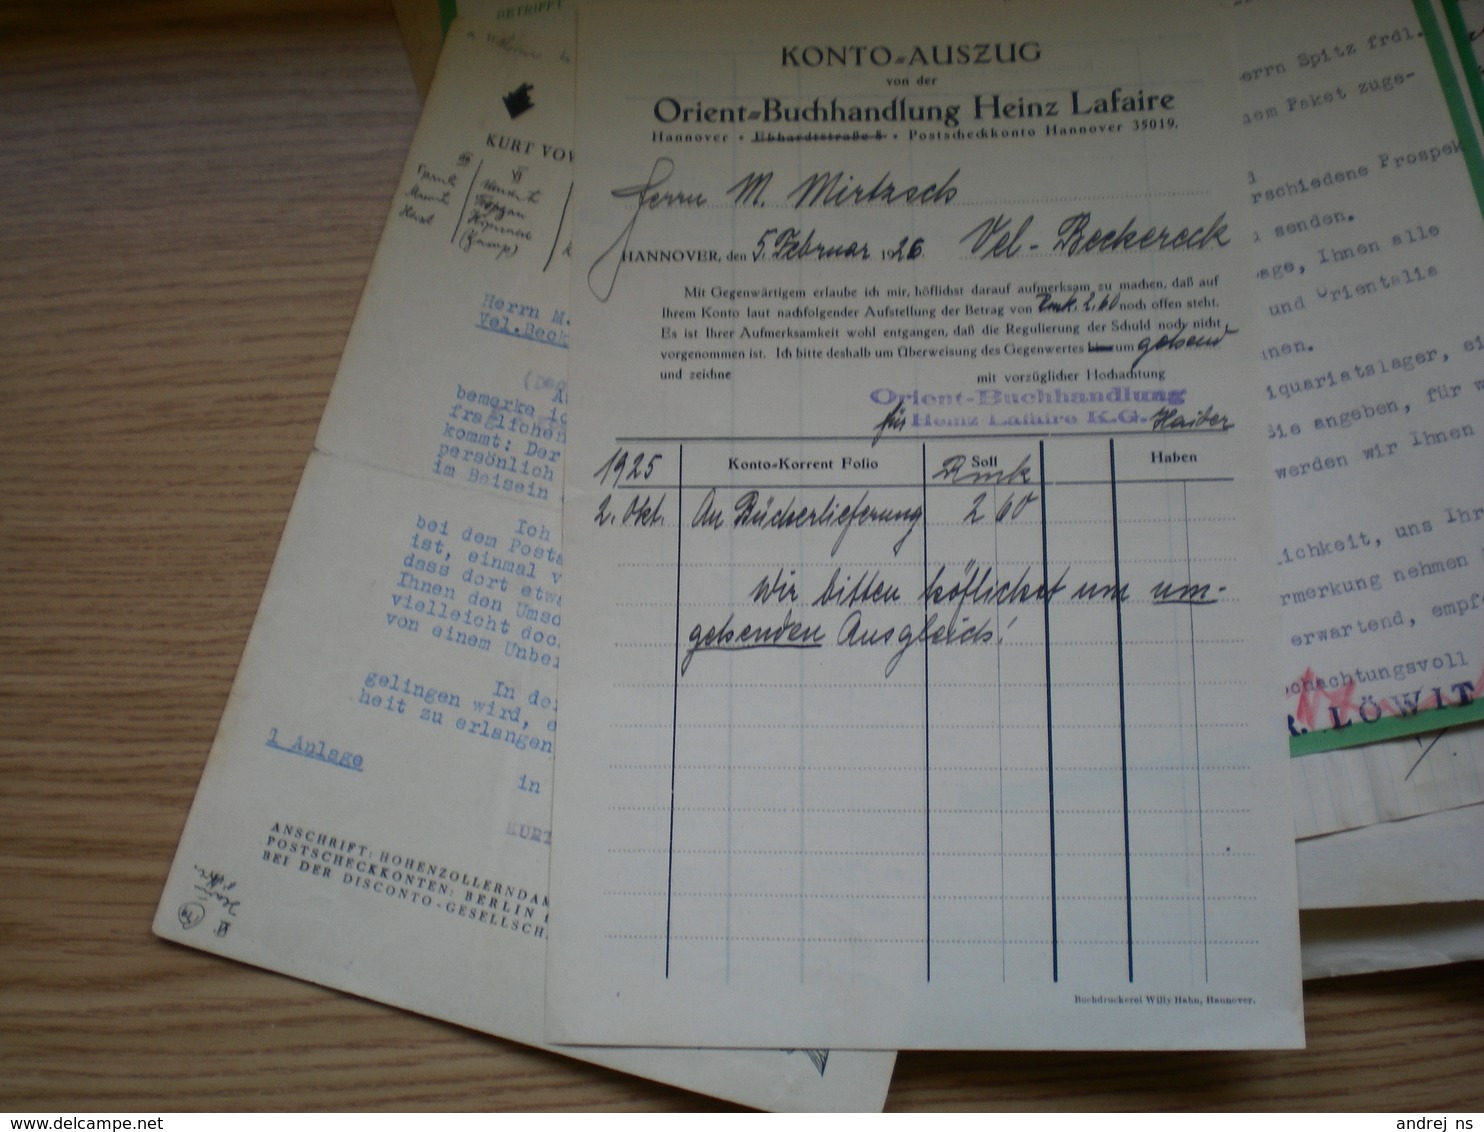 KONTO-AUSZUG
von der
Orient-Buchhandlung Heinz Lafaire
Hannover • Ebhardtstraße 8 • Postscheckkonto Hannover 35019.
Herrn M. Mirtzsch
HANNOVER, den 5. Februar 1926. Vel-Beckereck
Mit Gegenwärtigem erlaube ich mir, höflichst darauf aufmerksam zu machen, daß auf
Ihrem Konto laut nachfolgender Aufstellung der Betrag von Rmk. 2.60 noch offen steht.
Es ist Ihrer Aufmerksamkeit wohl entgangen, daß die Regulierung der Schuld noch nicht
vorgenommen ist. Ich bitte deshalb um Überweisung des Gegenwertes umgehend
und zeichne mit vorzüglicher Hochachtung
Orient-Buchhandlung
für Heinz Lafaire K.G.
1925 Konto-Korrent Folio Soll Rmk Haben
2. Okt. An Bücherlieferung 2 60
Wir bitten höflichst um um-
gehenden Ausgleich!
Buchdruckerei Willy Hahn, Hannover.
BETRIFFT
KURT VOW
Herrn M.
Vel.Beck
bemerke ic
fraglichen
kommt: Der
persönlich
im Beisein
Ich
bei dem Posts
ist, einmal v
dass dort etwa
Ihnen den Umsc
vielleicht doc
von einem Unbe
In de
gelingen wird, e
heit zu erlangen
1 Anlage
in
KURT
ANSCHRIFT: HOHENZOLLERNDAM
POSTSCHECKKONTEN: BERLIN
BEI DER DISCONTO-GESELLSCH
errn Spitz frdl.
nem Paket zuge-
rschiedene Prospek
senden.
age, Ihnen alle
und Orientalia
nen.
iquariatslager, ei
Sie angeben, für w
werden wir Ihnen
lichkeit, uns Ihr
rmerkung nehmen
erwartend, empf
ochachtungsvoll
R. LÖWIT
andrej ns